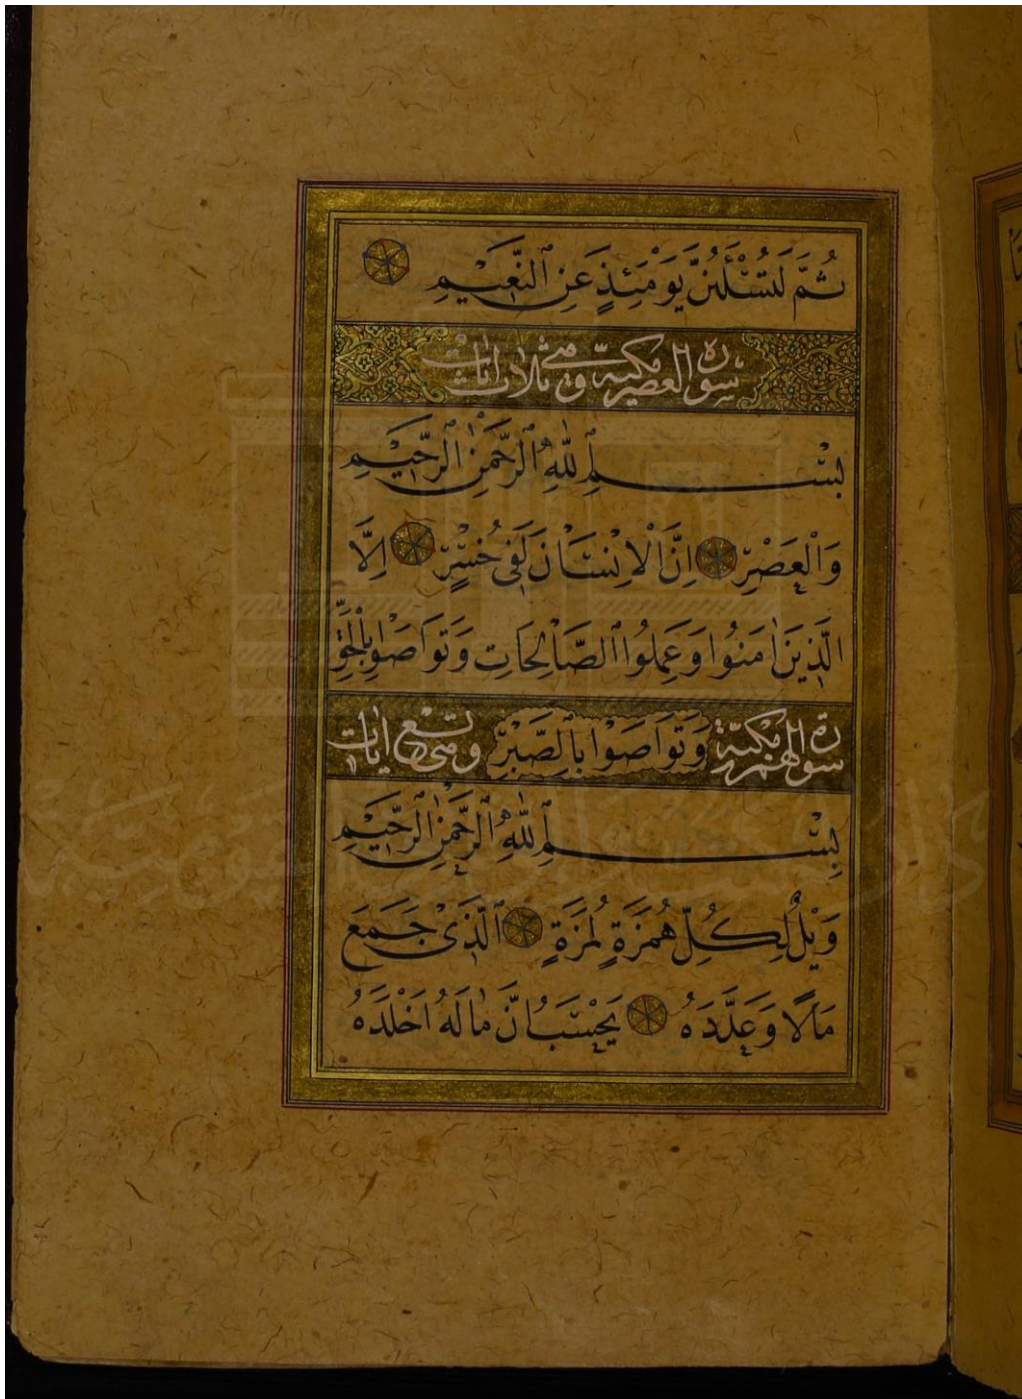 ثُمَّ لَتُسْـَٔلُنَّ يَوْمَئِذٍ عَنِ ٱلنَّعِيْمِ
سورة العصر مكية وهي ثلاث ايات
بِسْمِ ٱللّٰهِ ٱلرَّحْمٰنِ ٱلرَّحِيْمِ
وَالْعَصْرِ اِنَّ الْاِنْسَانَ لَفِى خُسْرٍ اِلَّا
الَّذِيْنَ اٰمَنُوا وَعَمِلُوا ٱلصَّالِحَاتِ وَتَوَاصَوْا بِالْحَقِّ
سورة الهمزة مكية وَتَوَاصَوْا بِٱلصَّبْرِ وهي تسع ايات
بِسْمِ ٱللّٰهِ ٱلرَّحْمٰنِ ٱلرَّحِيْمِ
وَيْلٌ لِكُلِّ هُمَزَةٍ لُمَزَةٍ ٱلَّذِىْ جَمَعَ
مَالًا وَعَدَّدَهُ يَحْسَبُ اَنَّ مَالَهُ اَخْلَدَهُ
دار الكتب والوثائق القومية